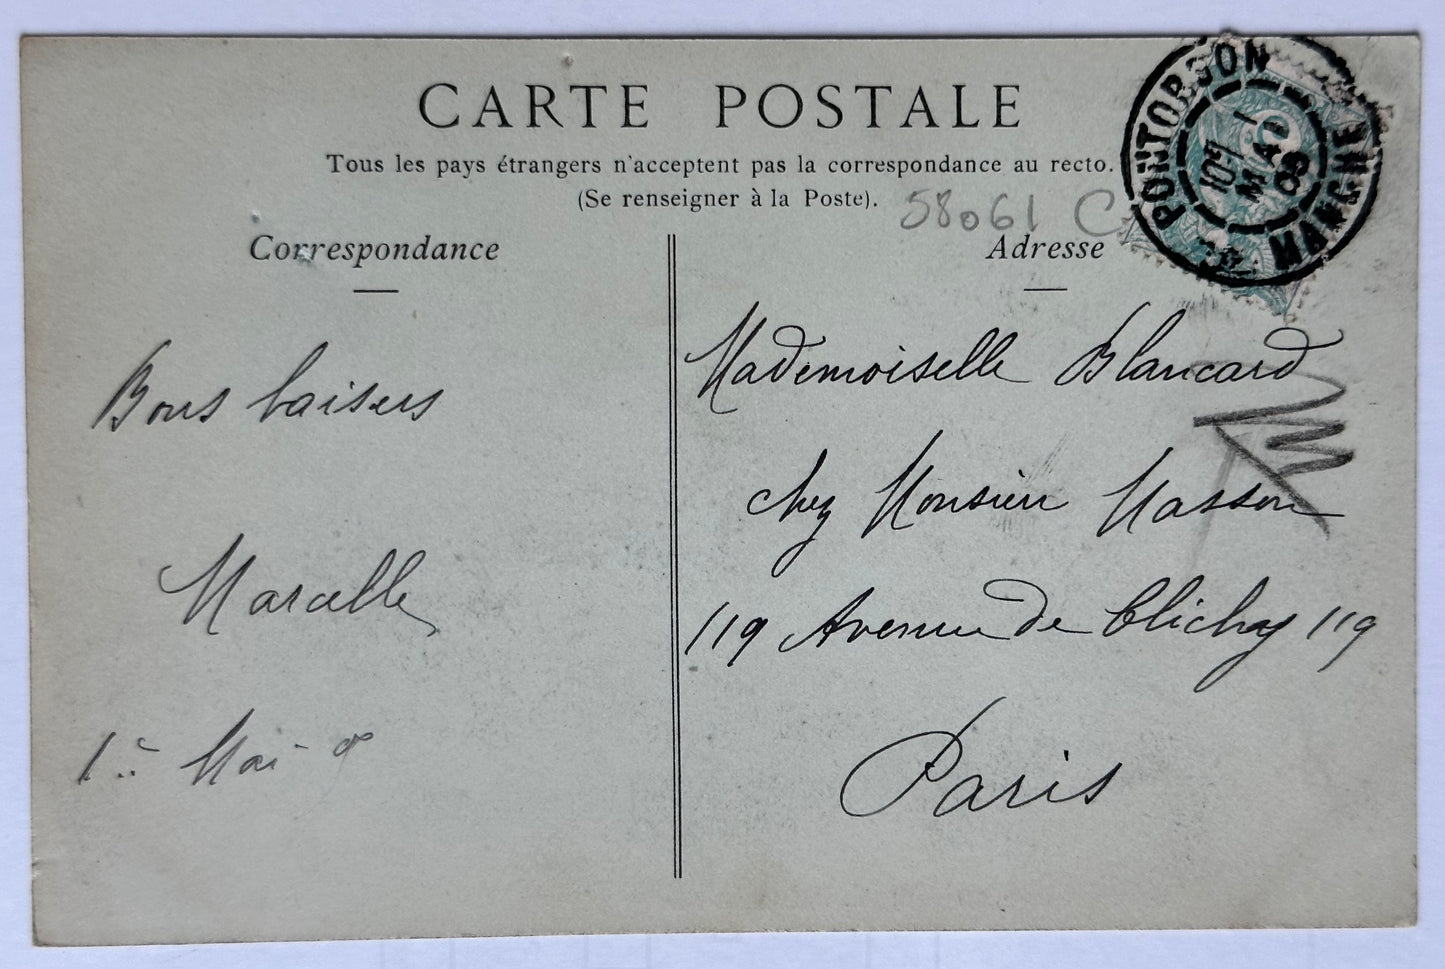 CARTE POSTALE
Tous les pays étrangers n'acceptent pas la correspondance au recto.
(Se renseigner à la Poste).
58061 C
Correspondance
Adresse
PONTORSON
MANCHE
1
MAI
Bons baisers
Marcelle
Mai
Mademoiselle Blancard
chez Monsieur Masson
119 Avenue de Clichy 119
Paris